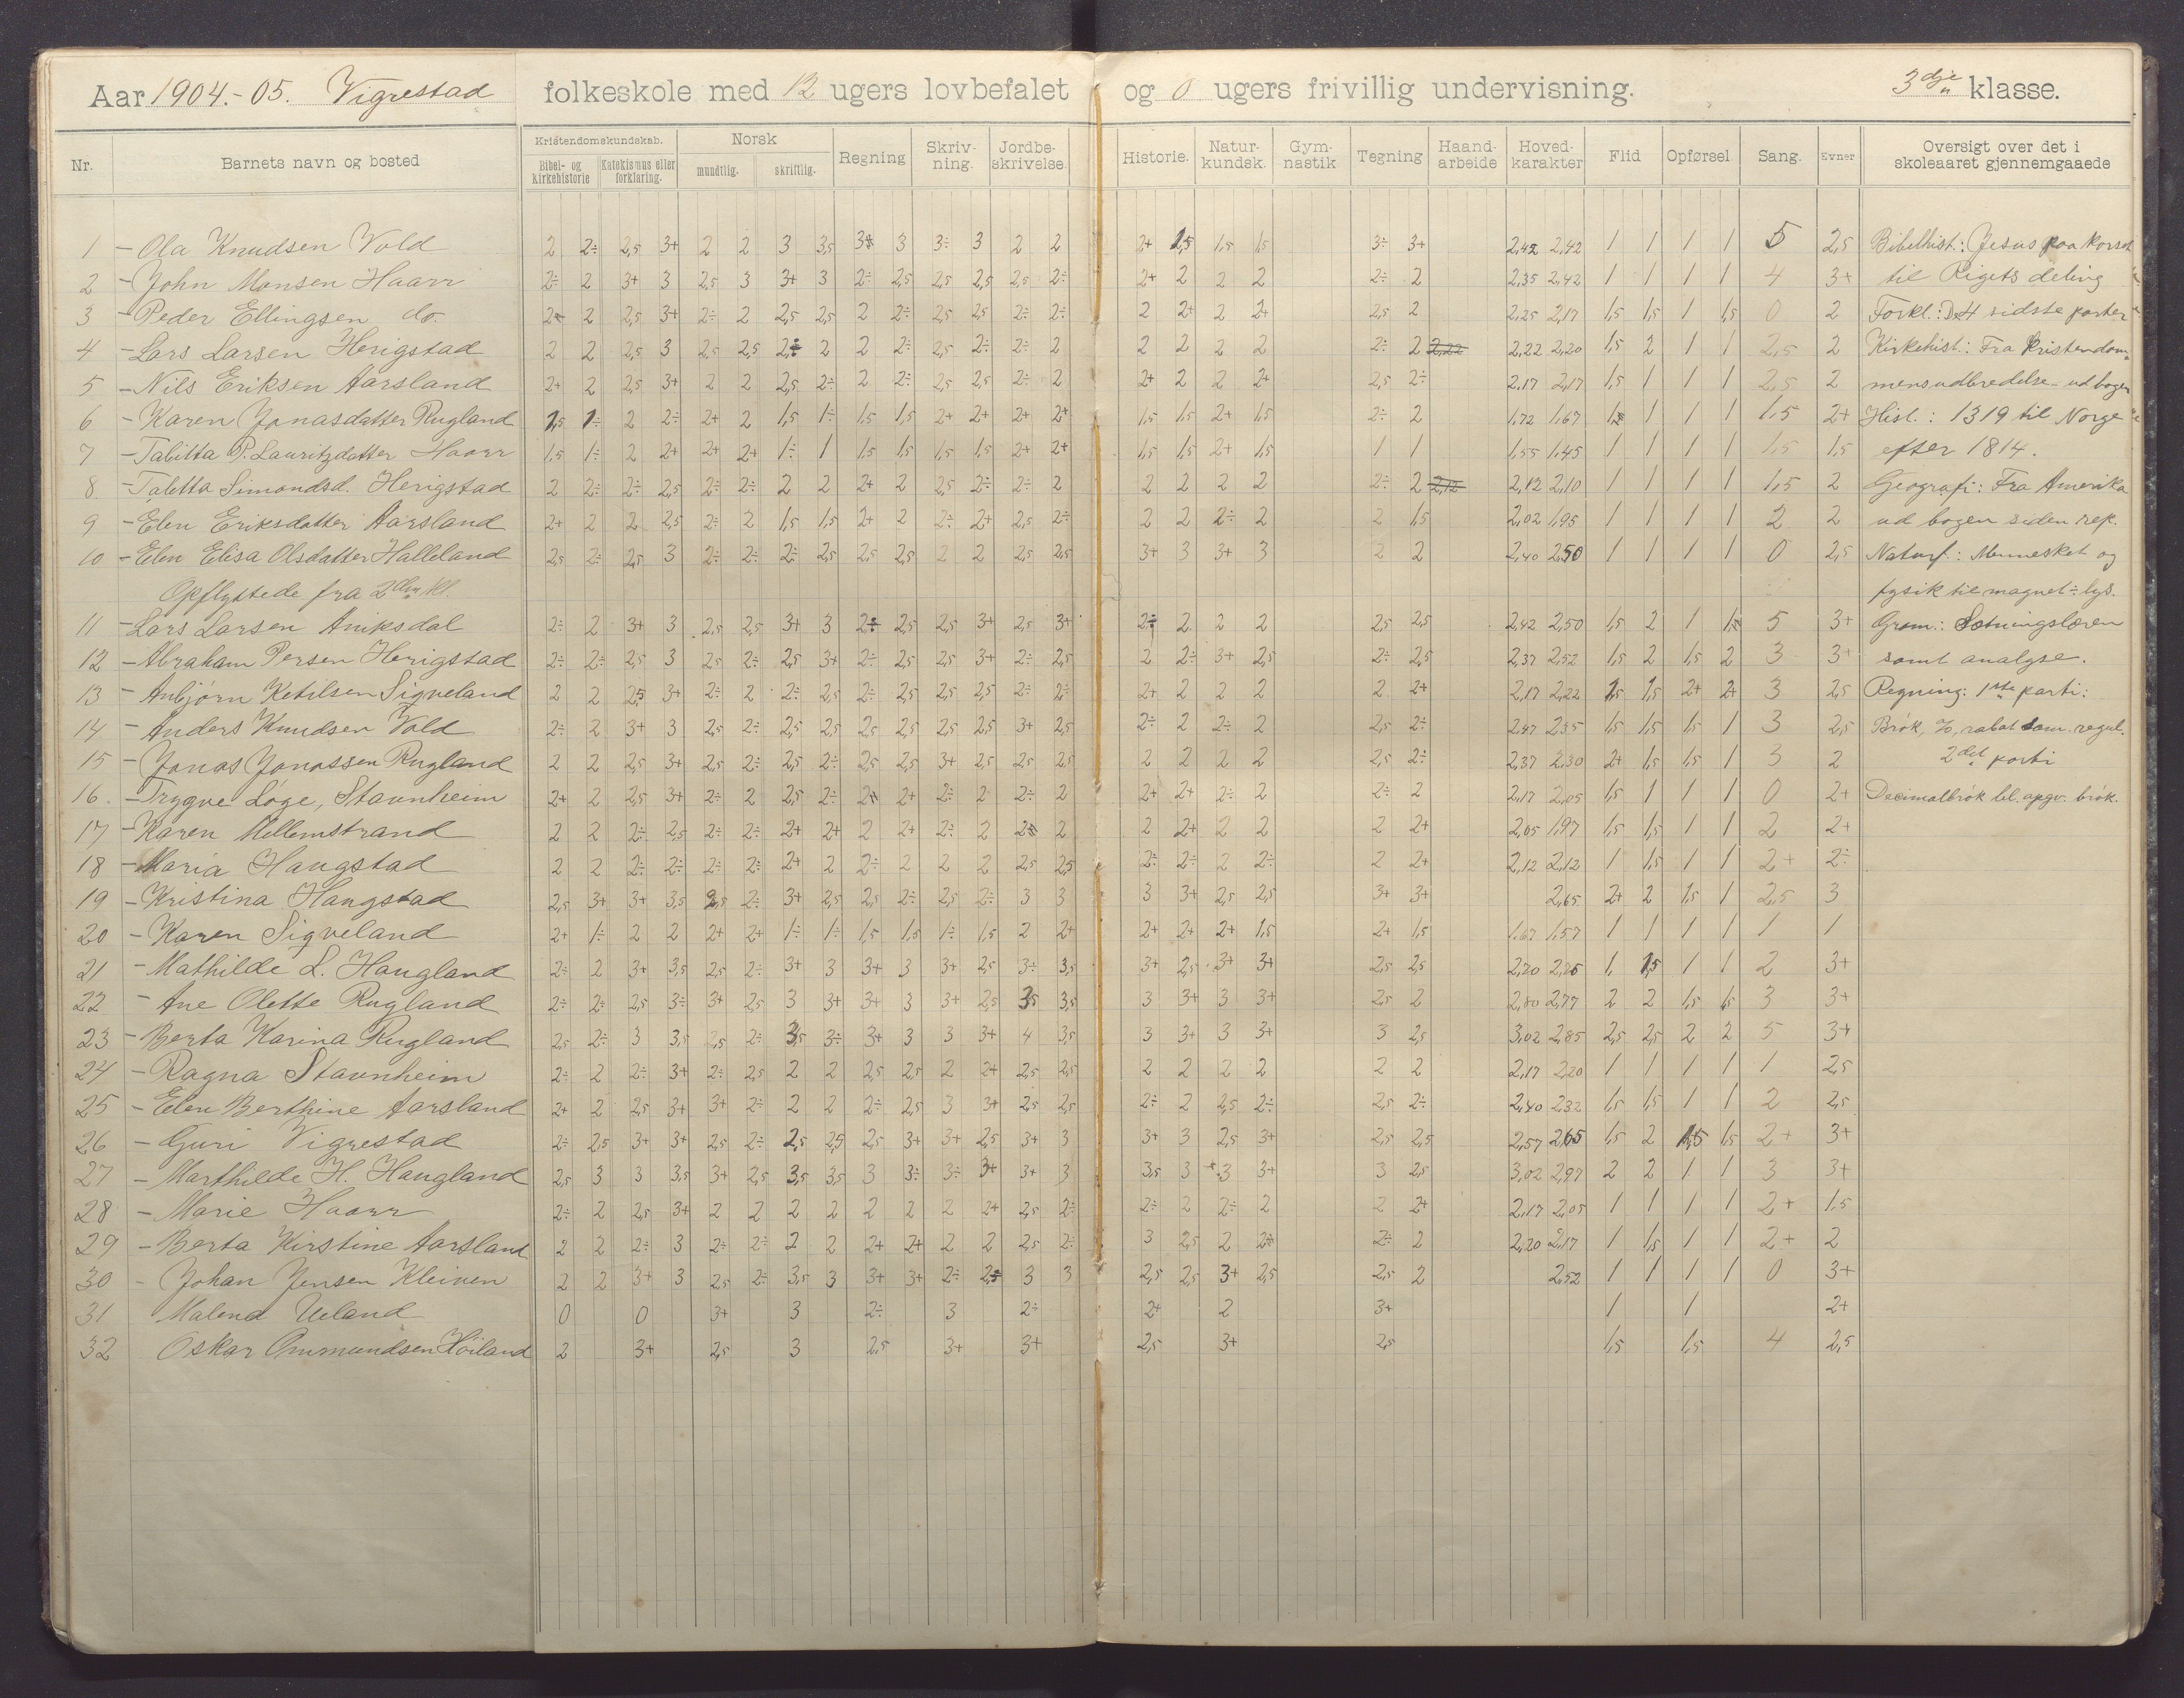 Aar 1904.-05. Vigrestad folkeskole med 12 ugers lovbefalet og 0 ugers frivillig undervisning. 3dje klasse.
Nr. Barnets navn og bosted Kristendomskundskab. Bibel- og kirkehistorie Katekismus eller forklaring. Norsk mundtlig. skriftlig. Regning Skriv-ning. Jordbe-skrivelse Historie. Natur-kundsk. Gym-nastik Tegning Haand-arbeide Hoved-karakter Flid Opførsel Sang. Evner Oversigt over det i skoleaaret gjennemgaaede
1 - Ola Knudsen Vold 2 2÷ 2,5 3+ 2 2 3 3,5 3+ 3 3÷ 3 2 2 2+ 1,5 1,5 1,5 3÷ 3+ 2,42 2,42 1 1 1 1 5 2,5 Bibelhist.: Jesus paa korset
2 - John Monsen Haarr 2÷ 2 3+ 3 2,5 3 3+ 3 2÷ 2,5 2,5 2,5 2,5 2÷ 2+ 2 2 2 2÷ 2 2,35 2,42 1 1 1 1 4 3+ til Rigets deling
3 - Peder Ellingsen do. 2 2 2,5 3+ 2÷ 2 2,5 2,5 2 2÷ 2,5 2,5 2÷ 2÷ 2 2+ 2 2+ 2,5 2 2,25 2,17 1,5 1,5 1 1,5 0 2 Forkl.: De 4 sidste parter
4 - Lars Larsen Herigstad 2 2 2,5 3 2,5 2,5 2÷ 2 2 2÷ 2,5 2÷ 2÷ 2 2 2 2 2 2÷ 2 2,22 2,22 2,20 1,5 2 1 1 2,5 2 Kirkehist.: Fra kristendom-
5 - Nils Eriksen Aarsland 2+ 2 2,5 3+ 2 2 2,5 2÷ 2 2÷ 2,5 2,5 2÷ 2 2+ 2 2 2+ 2,5 2÷ 2,17 2,17 1,5 1 1 1 2,5 2 mens udbredelse ud bogen
6 - Karen Jonasdatter Rugland 1,5 1÷ 2 2÷ 2+ 2 1,5 1÷ 1,5 1,5 2+ 2+ 2+ 2+ 1,5 1,5 2+ 1,5 2÷ 2 1,72 1,67 1 1 1 1,5 2+ Hist.: 1319 til Norge
7 - Tabitta P. Lauritzdatter Haarr 1,5 1÷ 2 2+ 2+ 2+ 1÷ 1 1,5 1,5 1,5 1,5 2+ 2+ 1,5 1,5 2+ 1,5 1 1 1,55 1,45 1 1 1 1 1,5 1,5 efter 1814.
8 - Tabitta Simondsd. Herigstad 2 2÷ 2÷ 2,5 2÷ 2÷ 2 2 2+ 2 2,5 2÷ 2÷ 2 2 2 2 2 2÷ 2 2,12 2,12 2,10 1 1 1 1 1,5 2 Geografi: Fra Amerika
9 - Elen Eriksdatter Aarsland 2+ 2 2 2,5 2÷ 2 1,5 1,5 2+ 2 2÷ 2+ 2,5 2÷ 2 2 2÷ 2 2 1,5 2,02 1,95 1 1 1 1 2 2 ud bogen siden rep.
10 - Elen Elisa Olsdatter Halleland 2,5 2÷ 2,5 3 2÷ 2÷ 2÷ 2,5 2,5 2,5 2 2 2,5 2,5 3+ 3 3+ 3 2 2 2,40 2,50 1 1 1 1 0 2,5 Naturf.: Mennesket og
Opflyttede fra 2den kl. fysik til magnet ÷ lys.
11 - Lars Larsen Aniksdal 2÷ 2 3+ 3 2,5 2,5 3+ 3 2÷ 2,5 2,5 3+ 2,5 3+ 2÷ 2 2 2 2,5 2,5 2,42 2,50 1,5 2 1 1,5 5 3+ Gram.: Sætningslæren
12 - Abraham Persen Herigstad 2÷ 2÷ 2,5 3 2,5 2÷ 2,5 3+ 2÷ 2,5 2,5 3+ 2÷ 2,5 2 2÷ 3+ 2,5 2÷ 2,5 2,37 2,52 1,5 2 1,5 2 3 3+ samt analyse.
13 - Anbjørn Ketilsen Sigveland 2 2 2,5 3+ 2÷ 2 2÷ 2,5 2÷ 2,5 2,5 2,5 2÷ 2÷ 2+ 2 2 2 2 2+ 2,17 2,22 1,5 1,5 2+ 2+ 3 2,5 Regning: 1ste parti:
14 - Anders Knudsen Vold 2÷ 2 3+ 3 2,5 2÷ 2,5 2,5 2,5 2,5 2,5 2,5 3+ 2,5 2÷ 2 2÷ 2 2,5 2÷ 2,47 2,35 1,5 1,5 1,5 1 3 2,5 Brøk, %, rabat sam. regul.
15 - Jonas Jonassen Rugland 2 2 2,5 3+ 2,5 2÷ 2,5 2÷ 2,5 2,5 3+ 2,5 2,5 2,5 2 2 2 2 2,5 2÷ 2,37 2,30 2+ 1,5 1,5 1 3 2 2det parti
16. - Trygve Løge, Stavnheim 2+ 2 2,5 3+ 2÷ 2 2,5 2÷ 2 2+ 2÷ 2 2÷ 2 2+ 2+ 2÷ 2 2÷ 2 2,17 2,05 1,5 1 1 1 0 2+ Decimalbrøk bl. opgv. brøk.
17 - Karen Mellemstrand 2 2 2÷ 2,5 2÷ 2÷ 2+ 2+ 2 2+ 2÷ 2 2 2 2 2+ 2 2 2 2+ 2,05 1,97 1,5 1,5 1 1 2 2+
18 - Maria Haugstad 2 2 2÷ 2÷ 2÷ 2÷ 2+ 2 2÷ 2 2 2 2,5 2,5 2÷ 2÷ 2 2÷ 2 2+ 2,12 2,12 1 1,5 1 1 2+ 2÷
19 - Kristina Haugstad 2,5 3+ 3+ 3,5 2,5 2÷ 3+ 2,5 2,5 2÷ 2,5 2÷ 3 3 3 3+ 2,5 2,5 3+ 3+ 2,65 2+ 2 1,5 1 2,5 3
20 - Karen Sigveland 2+ 1÷ 2 2 2+ 2+ 1÷ 1÷ 1,5 1,5 1÷ 1,5 2 2+ 2+ 2+ 2+ 1,5 2+ 1,5 1,67 1,57 1 1 1 1 1 1
21 - Mathilde L. Haugland 2÷ 2 3+ 3,5 2,5 2÷ 3+ 3 3+ 3 3+ 2,5 3÷ 3,5 3+ 2,5 3+ 3+ 2,5 2,5 2,70 1, 1,5 1 1 2 3+
22 - Ane Olette Rugland 2÷ 2÷ 2,5 3÷ 3+ 2,5 3 3+ 3+ 3 3+ 2,5 3,5 3,5 3 3+ 3 3+ 2,5 2 2,80 2,77 2 2 1,5 1,5 3 3+
23 - Berta Karina Rugland 2,5 2÷ 3 3,5 2,5 2÷ 3,5 3÷ 3+ 3 3 3+ 4 3,5 3 3+ 3 3+ 3 2,5 3,02 2,85 2,5 2,5 2 2 5 3+
24 - Ragna Stavnheim 2÷ 2 2÷ 3+ 2÷ 2,5 2 2 2,5 2,5 2 2+ 2,5 2,5 2 2 2 2 2 2 2,17 2,20 1 1 1 1 1 2,5
25 - Elen Berthine Aarsland 2+ 2 2,5 3+ 3+ 2÷ 2 2 2÷ 2,5 3 3+ 2,5 2,5 2÷ 2 2,5 2÷ 2,5 2÷ 2,40 2,32 1,5 1,5 1 1 2 2,5
26 - Guri Vigrestad 2÷ 2,5 3+ 3+ 2,5 2÷ 2,5 2,5 2,5 3+ 3+ 2,5 3+ 3 3+ 3 2,5 3+ 2,5 2,5 2,57 2,65 1,5 2 1,5 1,5 2+ 3+
27 - Marthilde H. Haugland 2,5 3 3 3,5 3+ 2,5 3,5 3,5 3 3÷ 3÷ 3+ 3+ 3 3,5 3 3 3+ 3 2,5 3,02 2,97 2 2 1 1 3 3+
28 - Marie Haarr 2÷ 2 2,5 3+ 2 2 2 2 2 2 2 2+ 2,5 2÷ 2÷ 2 2÷ 2 2 2+ 2,17 2,05 1 1 1 1 2+ 1,5
29 - Berta Kirstine Aarsland 2 2 2÷ 3 2÷ 2÷ 2 2 2+ 2+ 2 2 2,5 2÷ 3 2,5 2 2÷ 2÷ 2 2,20 2,17 1 1,5 1 1 2+ 2
30 - Johan Jensen Kleiven 2 2 3+ 3 2,5 2÷ 3,5 3 3+ 3+ 2÷ 2÷ 3 3 2,5 2,5 3+ 2,5 2,5 2 2,52 1 1 1 1 0 3+
31 Malena Ueland 0 0 3+ 3 2÷ 3 2÷ 2+ 2 3+ 1 1 2+
32 Oskar Ommundsen Høiland 2 3+ 2,5 3 2,5 3+ 3+ 2,5 3+ 2,5 1,5 1,5 4 2,5